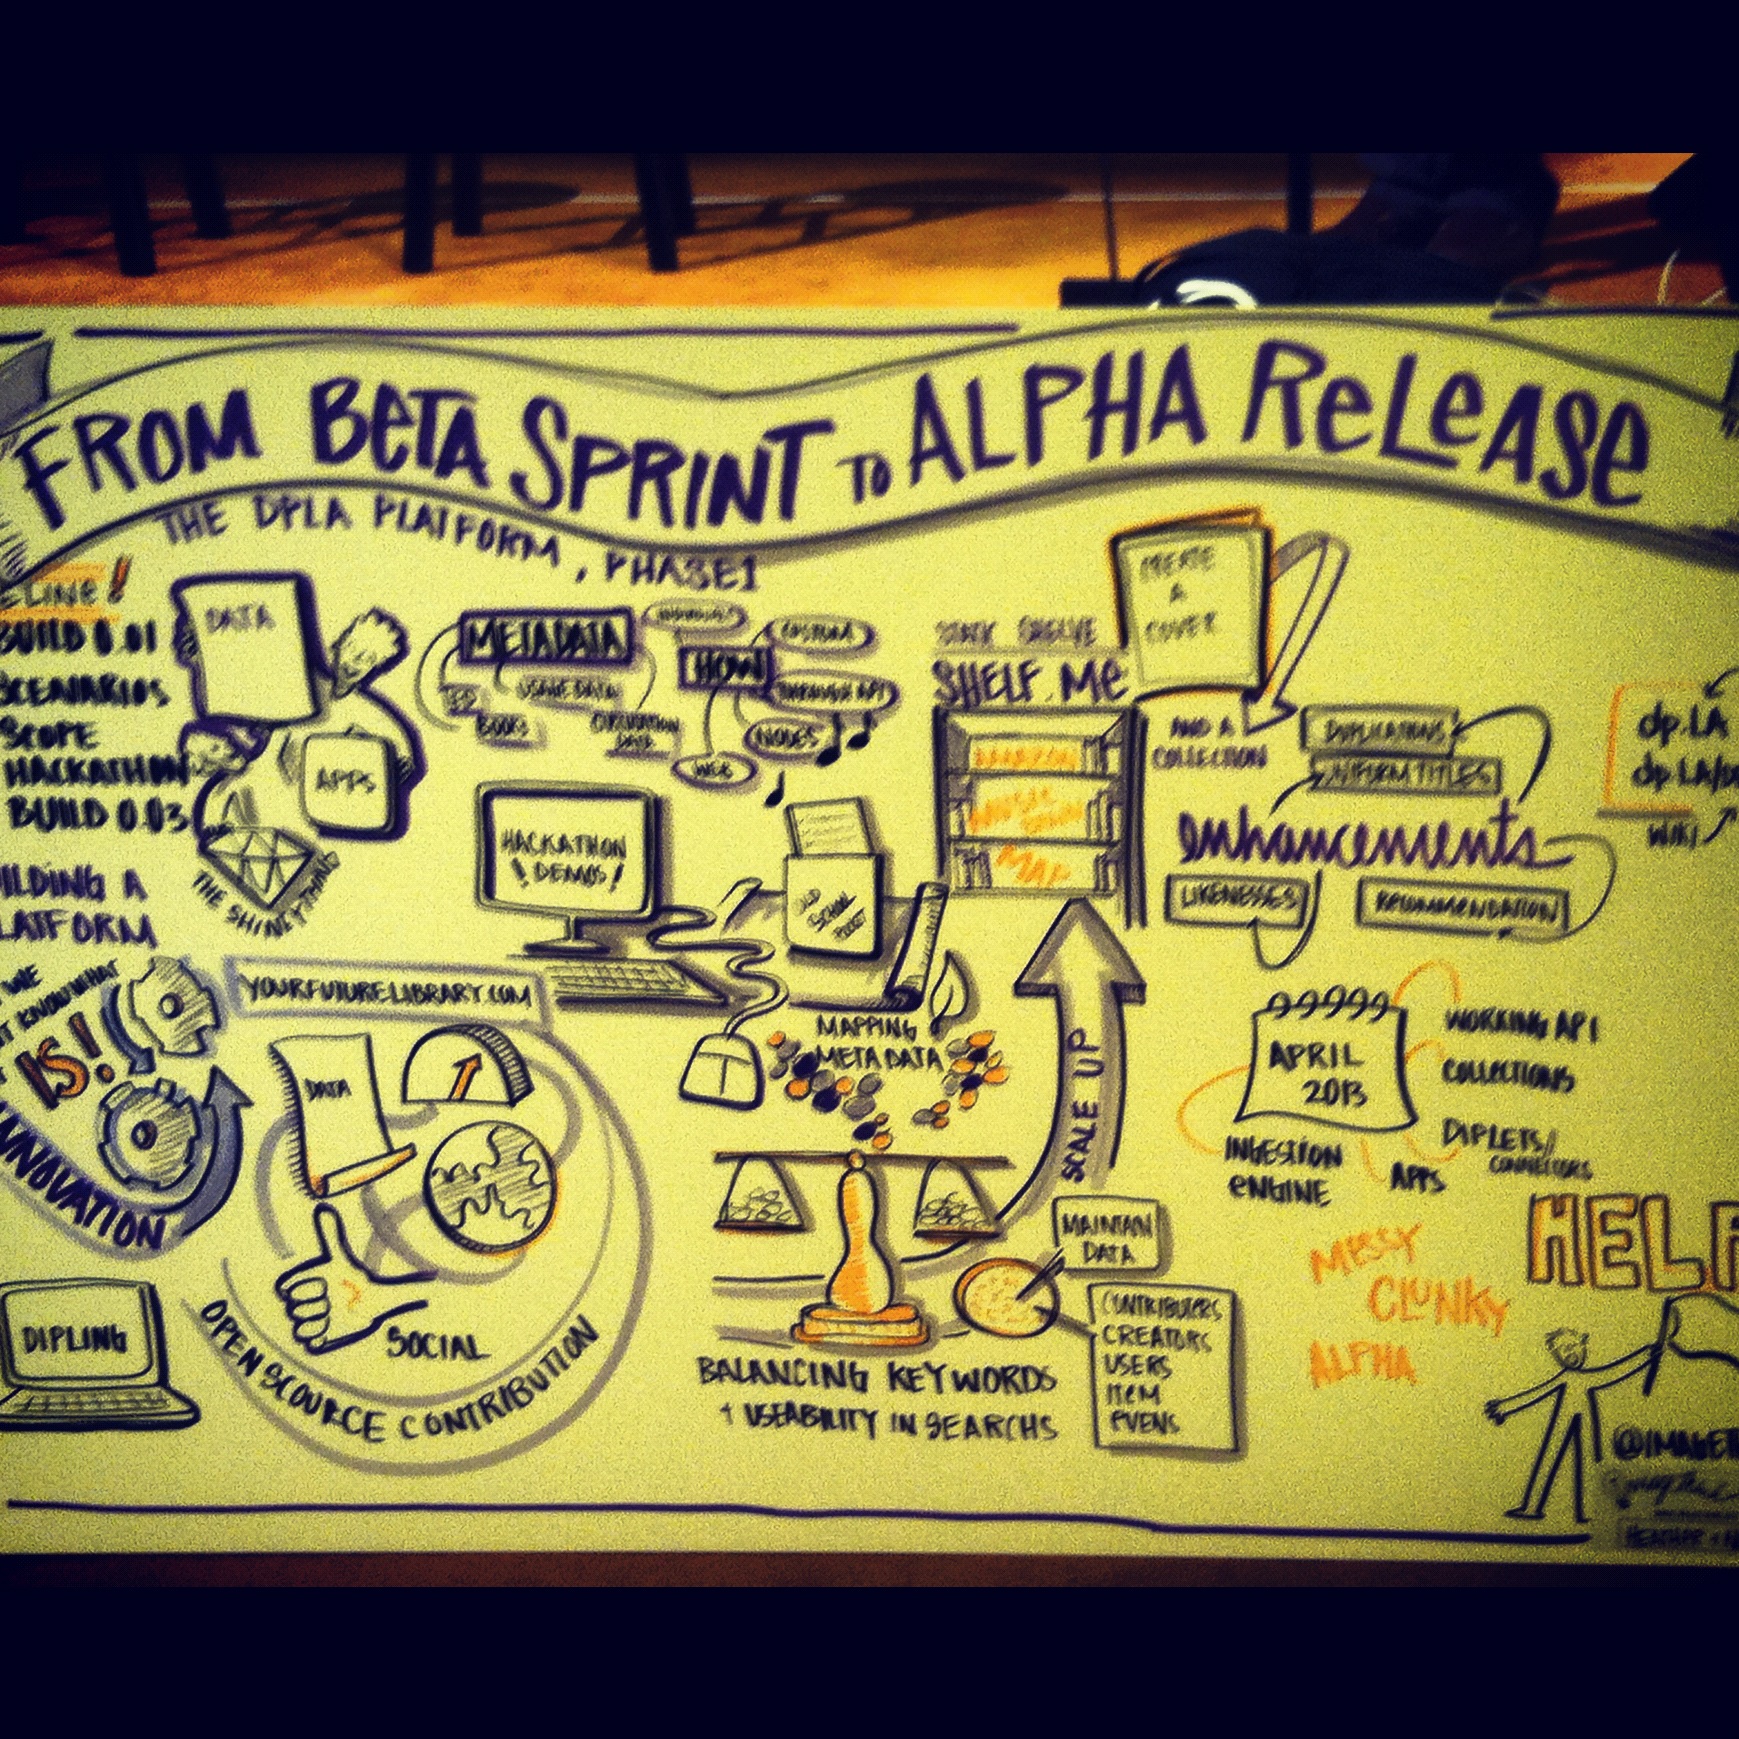 FROM BETA SPRINT TO ALPHA RELEASE
THE DPLA PLATFORM, PHASE 1
ELINE!
BUILD 0.01
SCENARIOS
SCOPE
HACKATHON
BUILD 0.03
DATA
APPS
THE SHINEY THING
ILDING A
LATFORM
WE
T KNOW WHAT
IT
IS!
NNOVATION
DIPLING
METADATA
USAGE DATA
BOOKS
DATA
HOW
CUSTOM
THROUGH API
NODES
WEB
HACKATHON
! DEMOS!
OLD
SCHOOL
POCKET
YOURFUTURELIBRARY.COM
DATA
SOCIAL
OPEN SCOURCE CONTRIBUTION
MAPPING
METADATA
BALANCING KEYWORDS
+ USEABILITY IN SEARCHS
MAINTAIN
DATA
CONTRIBUTERS
CREATORS
USERS
ITEM
EVENS
SCALE UP
SHELF.ME
AMAZON
MAP
CREATE
A
COVER
AND A
COLLECTION
DUPLICATIONS
UNIFORM TITLES
enhancements
LIKENESSES
RECOMMENDATION
dp.LA
dp.LA/
WIKI
APRIL
2013
WORKING API
COLLECTIONS
DIPLETS/
CONNECTORS
APPS
INGESTION
ENGINE
MESSY
CLUNKY
ALPHA
HELP
@IMAGET